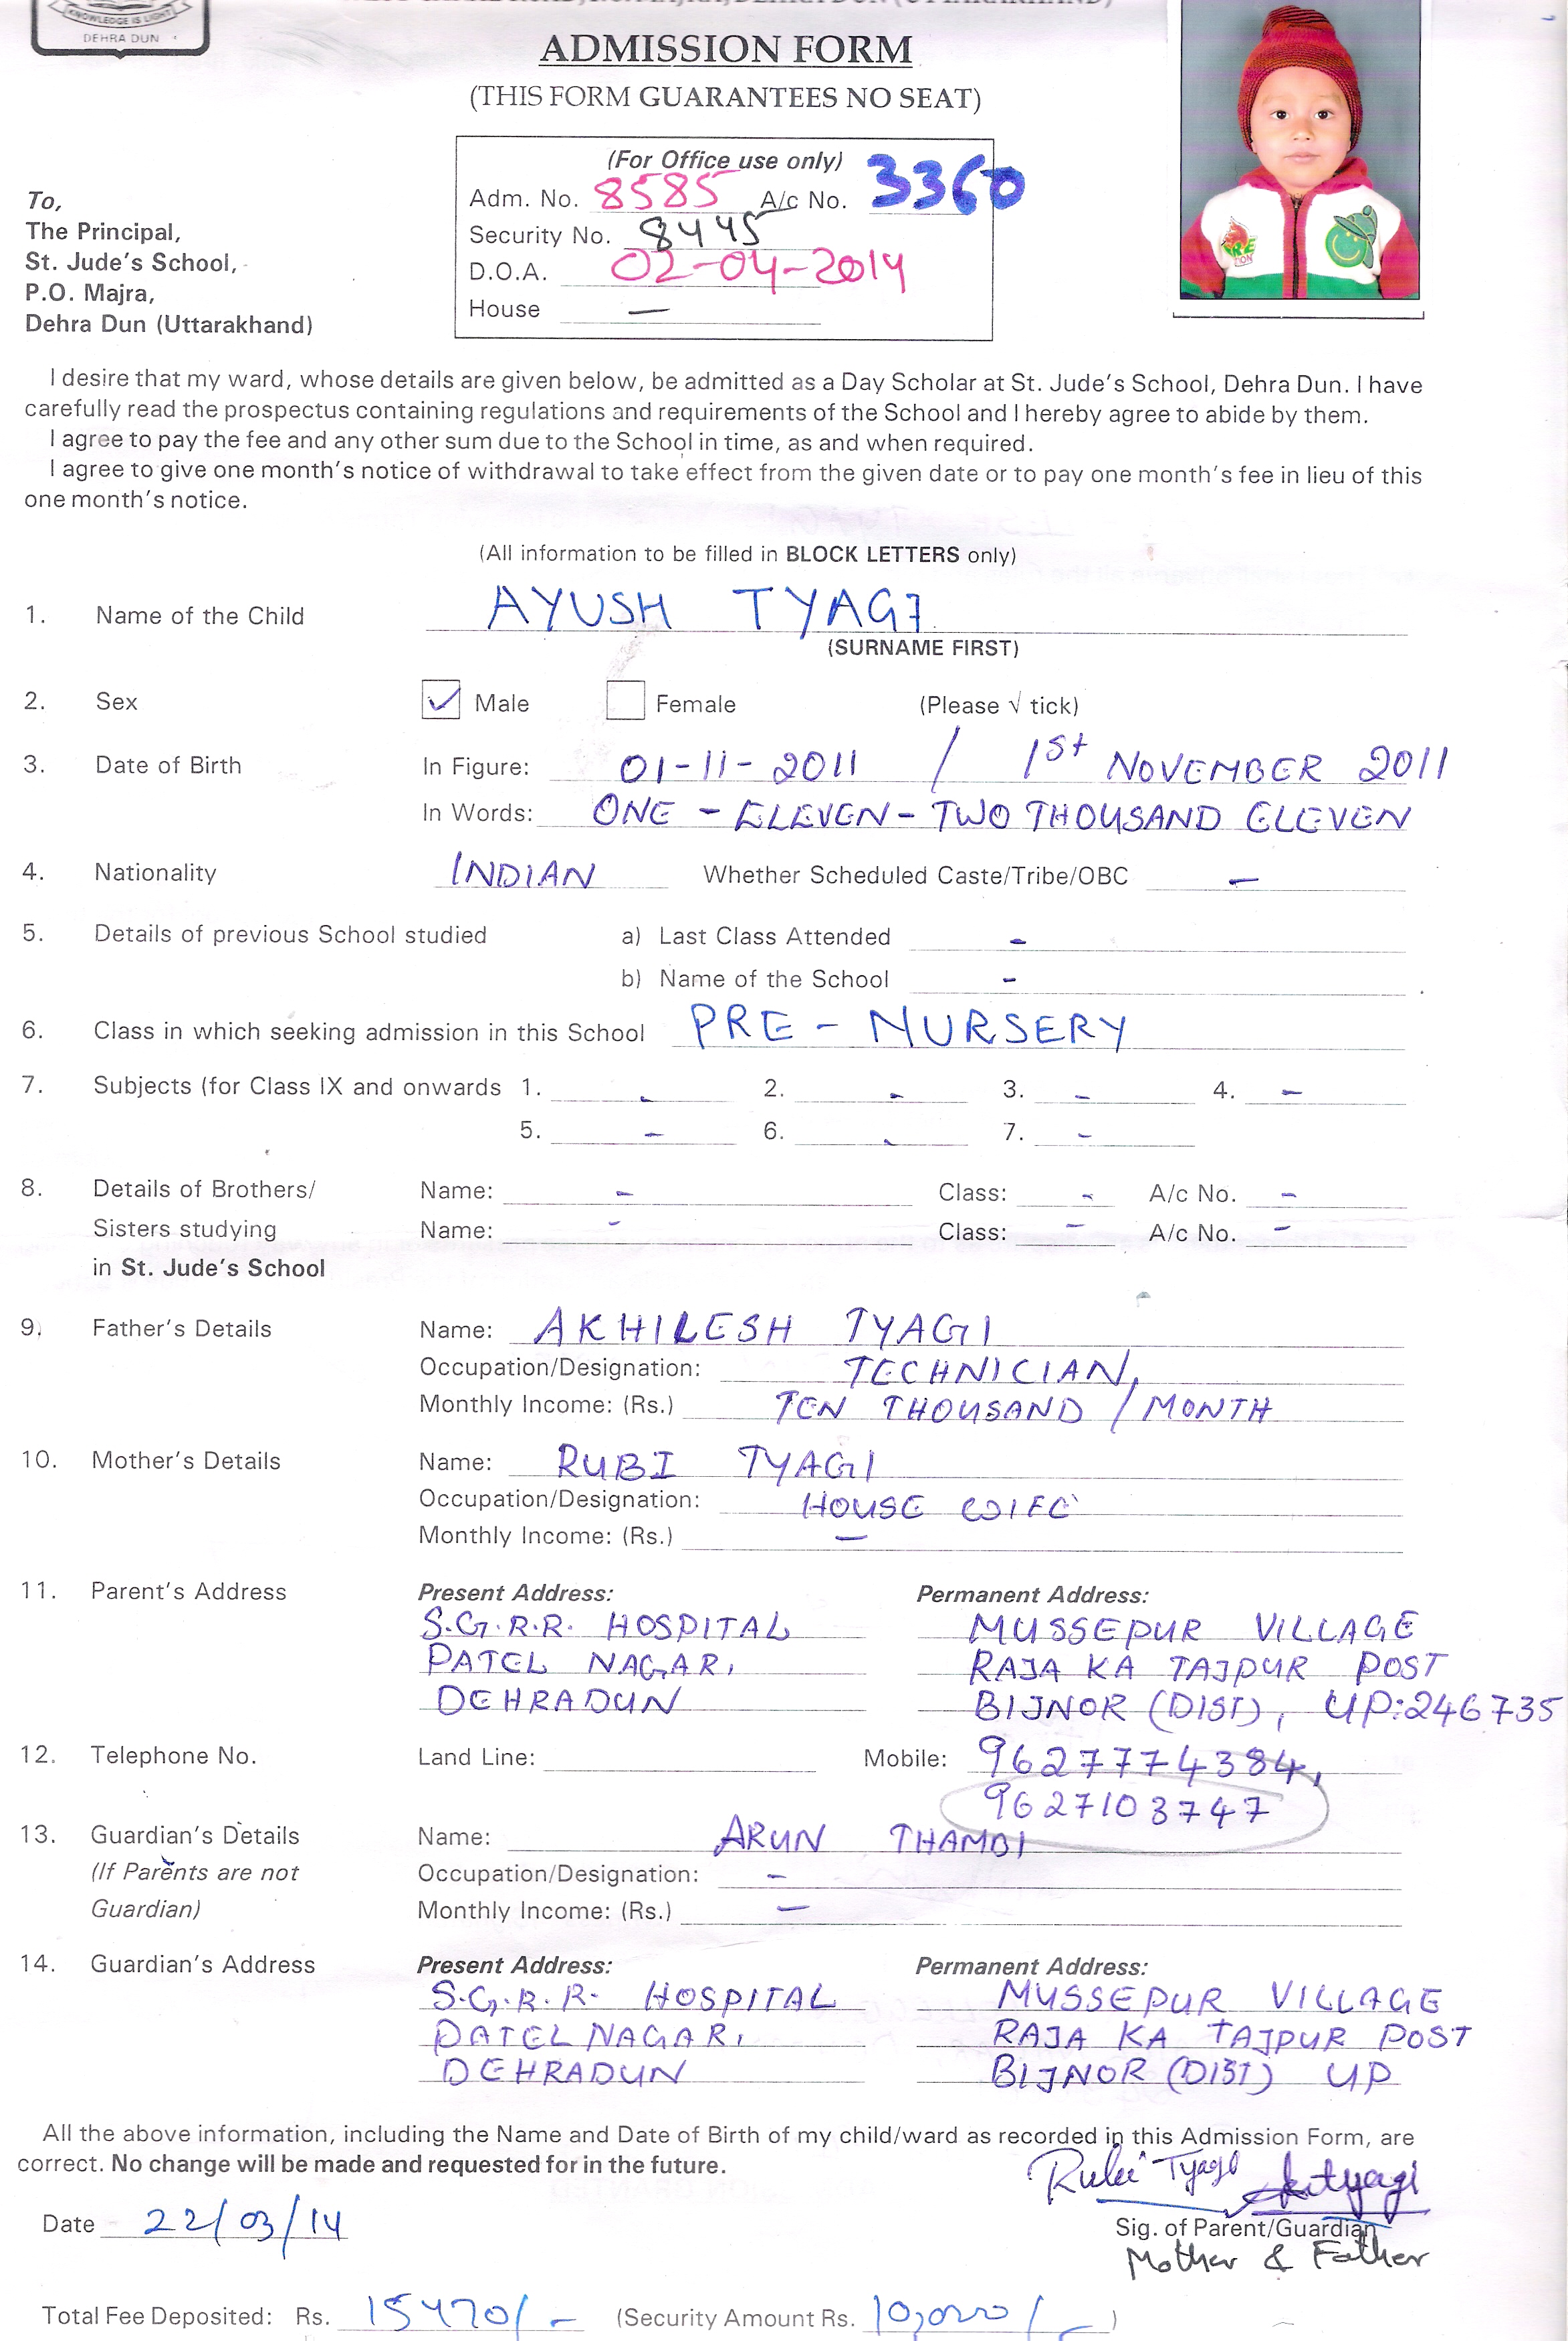 KNOWLEDGE IS LIGHT
DEHRA DUN
ADMISSION FORM
(THIS FORM GUARANTEES NO SEAT)
(For Office use only)
Adm. No. 8585 A/c No. 3360
Security No. 8445
D.O.A. 02-04-2014
House —
To,
The Principal,
St. Jude's School,
P.O. Majra,
Dehra Dun (Uttarakhand)
I desire that my ward, whose details are given below, be admitted as a Day Scholar at St. Jude's School, Dehra Dun. I have
carefully read the prospectus containing regulations and requirements of the School and I hereby agree to abide by them.
I agree to pay the fee and any other sum due to the School in time, as and when required.
I agree to give one month's notice of withdrawal to take effect from the given date or to pay one month's fee in lieu of this
one month's notice.
(All information to be filled in BLOCK LETTERS only)
1. Name of the Child AYUSH TYAGI
(SURNAME FIRST)
2. Sex ✓ Male Female (Please √ tick)
3. Date of Birth In Figure: 01-11-2011 / 1st NOVEMBER 2011
In Words: ONE - ELEVEN - TWO THOUSAND ELEVEN
4. Nationality INDIAN Whether Scheduled Caste/Tribe/OBC —
5. Details of previous School studied a) Last Class Attended -
b) Name of the School -
6. Class in which seeking admission in this School PRE - NURSERY
7. Subjects (for Class IX and onwards 1. - 2. - 3. - 4. -
5. - 6. - 7. -
8. Details of Brothers/ Name: - Class: - A/c No. -
Sisters studying Name: - Class: - A/c No. -
in St. Jude's School
9. Father's Details Name: AKHILESH TYAGI
Occupation/Designation: TECHNICIAN,
Monthly Income: (Rs.) TEN THOUSAND / MONTH
10. Mother's Details Name: RUBI TYAGI
Occupation/Designation: HOUSE WIFE
Monthly Income: (Rs.) —
11. Parent's Address Present Address: Permanent Address:
S.G.R.R. HOSPITAL MUSSEPUR VILLAGE
PATEL NAGAR, RAJA KA TAJPUR POST
DEHRADUN BIJNOR (DIST), UP:246735
12. Telephone No. Land Line: Mobile: 9627774384,
9627103747
13. Guardian's Details Name: ARUN THAMBI
(If Parents are not Occupation/Designation: -
Guardian) Monthly Income: (Rs.) —
14. Guardian's Address Present Address: Permanent Address:
S.G.R.R. HOSPITAL MUSSEPUR VILLAGE
PATEL NAGAR, RAJA KA TAJPUR POST
DEHRADUN BIJNOR (DIST) UP
All the above information, including the Name and Date of Birth of my child/ward as recorded in this Admission Form, are
correct. No change will be made and requested for in the future.
Rubi Tyagi Aktyagi
Date 22/03/14
Sig. of Parent/Guardian
Mother & Father
Total Fee Deposited: Rs. 15470/- (Security Amount Rs. 10,000/- )